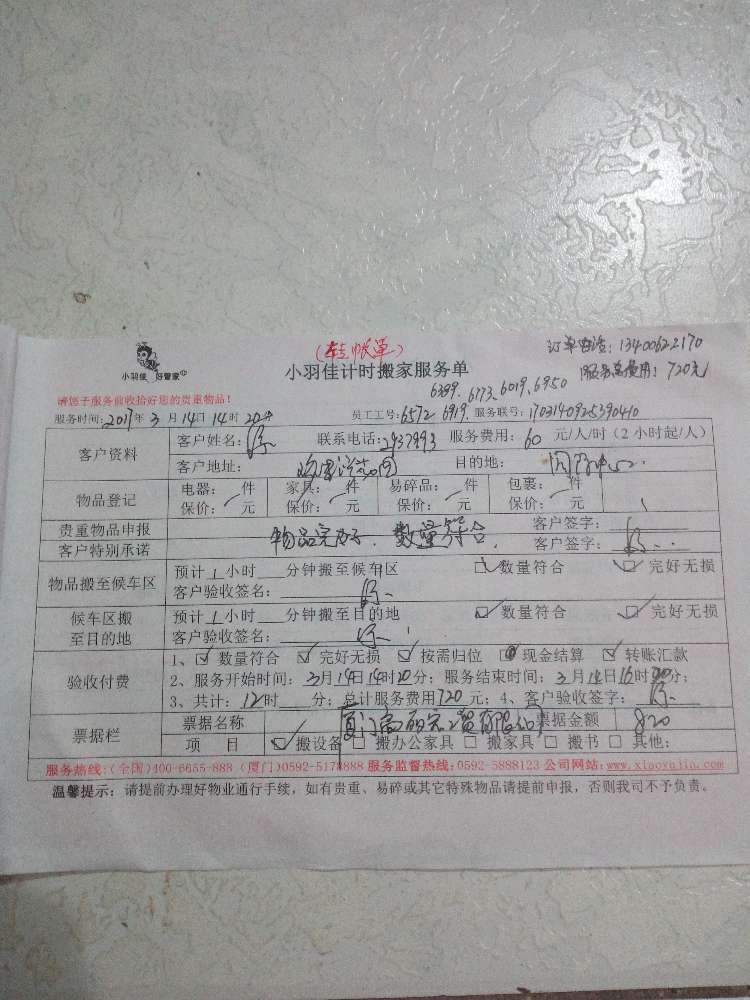 (转帐单)
订单电话：13400622170
小羽佳 好管家
小羽佳计时搬家服务单
服务总费用：720元
请您于服务前收拾好您的贵重物品！
6389、6173、6019、6950
服务时间：2017年3月14日14时20分
员工工号：6572 6919 服务联号：1703140925390410
客户资料
客户姓名： 联系电话：2937993 服务费用：60 元/人/时（2小时起/人）
客户地址： 目的地：
物品登记
电器： 件 家具： 件 易碎品： 件 包裹： 件
保价： 元 保价： 元 保价： 元 保价： 元
贵重物品申报 客户签字：
物品完好，数量符合
客户特别承诺 客户签字：
物品搬至候车区
预计1小时 分钟搬至候车区 数量符合 完好无损
客户验收签名：
候车区搬至目的地
预计1小时 分钟搬至目的地 数量符合 完好无损
客户验收签名：
验收付费
1、 数量符合 完好无损 按需归位 现金结算 转账汇款
2、服务开始时间：3月14日14时20分；服务结束时间：3月14日16时20分；
3、共计：12时 分；总计服务费用720元；4、客户验收签字：
票据栏
票据名称 票据金额 820
项 目 搬设备 搬办公家具 搬家具 搬书 其他：
服务热线：(全国)400-6655-888 (厦门)0592-5178888 服务监督热线：0592-5888123 公司网站：www.xiaoyujia.com
温馨提示：请提前办理好物业通行手续，如有贵重、易碎或其它特殊物品请提前申报，否则我司不予负责。